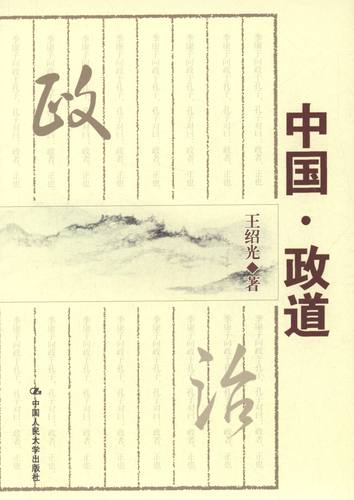 中国·政道
王绍光◆著
政
治
中国人民大学出版社